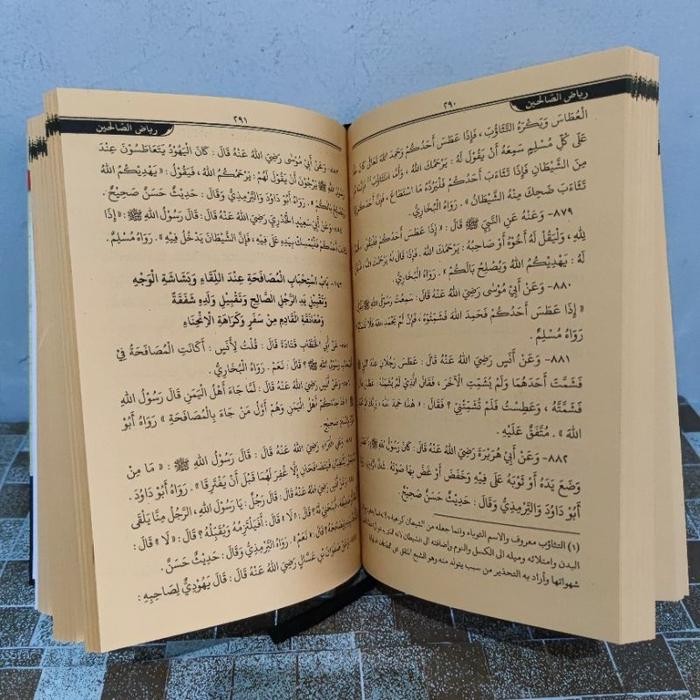 رياض الصالحين
٢٩٠
الْعُطَاسَ وَيَكْرَهُ التَّثَاؤُبَ، فَإِذَا عَطَسَ أَحَدُكُمْ وَحَمِدَ اللهَ تَعَالَى كَانَ حَقًّا
عَلَى كُلِّ مُسْلِمٍ سَمِعَهُ أَنْ يَقُولَ لَهُ : يَرْحَمُكَ اللهُ ، وَأَمَّا التَّثَاؤُبُ فَإِنَّمَا هُوَ
مِنَ الشَّيْطَانِ، فَإِذَا تَثَاءَبَ أَحَدُكُمْ فَلْيَرُدَّهُ مَا اسْتَطَاعَ ، فَإِنَّ أَحَدَكُمْ إِذَا
تَثَاءَبَ ضَحِكَ مِنْهُ الشَّيْطَانُ» . رَوَاهُ الْبُخَارِيُّ .
٨٧٩- وَعَنْهُ عَنِ النَّبِيِّ ﷺ قَالَ : « إِذَا عَطَسَ أَحَدُكُمْ فَلْيَقُلْ : الْحَمْدُ
لِلَّهِ ، وَلْيَقُلْ لَهُ أَخُوهُ أَوْ صَاحِبُهُ : يَرْحَمُكَ اللهُ . فَإِذَا قَالَ لَهُ : يَرْحَمُكَ اللهُ فَلْيَقُلْ
لَهُ : يَهْدِيكُمُ اللهُ وَيُصْلِحُ بَالَكُمْ» . رَوَاهُ الْبُخَارِيُّ .
٨٨٠- وَعَنْ أَبِي مُوسَى رَضِيَ اللهُ عَنْهُ قَالَ : سَمِعْتُ رَسُولَ اللهِ ﷺ
« إِذَا عَطَسَ أَحَدُكُمْ فَحَمِدَ اللهَ فَشَمِّتُوهُ ، فَإِنْ لَمْ يَحْمَدِ اللهَ فَلَا
رَوَاهُ مُسْلِمٌ .
٨٨١- وَعَنْ أَنَسٍ رَضِيَ اللهُ عَنْهُ قَالَ : عَطَسَ رَجُلَانِ عِنْدَ
فَشَمَّتَ أَحَدَهُمَا وَلَمْ يُشَمِّتِ الْآخَرَ ، فَقَالَ الَّذِي لَمْ يُشَمِّتْهُ : عَطَسَ
فَشَمَّتَّهُ ، وَعَطَسْتُ فَلَمْ تُشَمِّتْنِي ؟ فَقَالَ : « هَذَا حَمِدَ اللهَ
اللهَ» . مُتَّفَقٌ عَلَيْهِ .
٨٨٢- وَعَنْ أَبِي هُرَيْرَةَ رَضِيَ اللهُ عَنْهُ قَالَ : كَانَ رَسُولُ اللهِ ﷺ إِذَا
وَضَعَ يَدَهُ أَوْ ثَوْبَهُ عَلَى فِيهِ وَخَفَضَ أَوْ غَضَّ بِهَا صَوْتَهُ .
أَبُو دَاوُدَ وَالتِّرْمِذِيُّ وَقَالَ : حَدِيثٌ حَسَنٌ صَحِيحٌ .
(١) التثاؤب معروف والاسم الثوباء وانما جعله من الشيطان كراهية
البدن وامتلائه وميله الى الكسل والنوم وأضافه الى الشيطان لأنه الذي
شهواتها وأراد به التحذير من سبب يتولد منه وهو الشبع
رياض الصالحين
٢٩١
وَعَنْ أَبِي مُوسَى رَضِيَ اللهُ عَنْهُ قَالَ : كَانَ الْيَهُودُ يَتَعَاطَسُونَ عِنْدَ
ﷺ يَرْجُونَ أَنْ يَقُولَ لَهُمْ : يَرْحَمُكُمُ اللهُ ، فَيَقُولُ : «يَهْدِيكُمُ اللهُ
بَالَكُمْ» . رَوَاهُ أَبُو دَاوُدَ وَالتِّرْمِذِيُّ وَقَالَ : حَدِيثٌ حَسَنٌ صَحِيحٌ .
وَعَنْ أَبِي سَعِيدٍ الْخُدْرِيِّ رَضِيَ اللهُ عَنْهُ قَالَ : قَالَ رَسُولُ اللهِ ﷺ : « إِذَا
أَحَدُكُمْ فَلْيُمْسِكْ بِيَدِهِ عَلَى فِيهِ، فَإِنَّ الشَّيْطَانَ يَدْخُلُ فِيهِ» . رَوَاهُ مُسْلِمٌ .
بَابُ اسْتِحْبَابِ الْمُصَافَحَةِ عِنْدَ اللِّقَاءِ وَبَشَاشَةِ الْوَجْهِ
وَتَقْبِيلِ يَدِ الرَّجُلِ الصَّالِحِ وَتَقْبِيلِ وَلَدِهِ شَفَقَةً
وَمُعَانَقَةِ الْقَادِمِ مِنْ سَفَرٍ وَكَرَاهَةِ الْاِنْحِنَاءِ
عَنْ أَبِي الْخَطَّابِ قَتَادَةَ قَالَ : قُلْتُ لِأَنَسٍ : أَكَانَتِ الْمُصَافَحَةُ فِي
رَسُولِ اللهِ ﷺ قَالَ : نَعَمْ . رَوَاهُ الْبُخَارِيُّ .
وَعَنْ أَنَسٍ رَضِيَ اللهُ عَنْهُ قَالَ : لَمَّا جَاءَ أَهْلُ الْيَمَنِ قَالَ رَسُولُ اللهِ
جَاءَكُمْ أَهْلُ الْيَمَنِ وَهُمْ أَوَّلُ مَنْ جَاءَ بِالْمُصَافَحَةِ» رَوَاهُ أَبُو
صَحِيحٍ .
وَعَنِ الْبَرَاءِ رَضِيَ اللهُ عَنْهُ قَالَ : قَالَ رَسُولُ اللهِ ﷺ : « مَا مِنْ
يَلْتَقِيَانِ فَيَتَصَافَحَانِ إِلَّا غُفِرَ لَهُمَا قَبْلَ أَنْ يَفْتَرِقَا» . رَوَاهُ أَبُو دَاوُدَ .
رَضِيَ اللهُ عَنْهُ قَالَ : قَالَ رَجُلٌ : يَا رَسُولَ اللهِ، الرَّجُلُ مِنَّا يَلْقَى
أَيَنْحَنِي لَهُ؟ قَالَ : « لَا » قَالَ : أَفَيَلْتَزِمُهُ وَيُقَبِّلُهُ ؟ قَالَ : « لَا » قَالَ :
قَالَ : « نَعَمْ» . رَوَاهُ التِّرْمِذِيُّ وَقَالَ : حَدِيثٌ حَسَنٌ .
وَعَنْ صَفْوَانَ بْنِ عَسَّالٍ رَضِيَ اللهُ عَنْهُ قَالَ : قَالَ يَهُودِيٌّ لِصَاحِبِهِ :